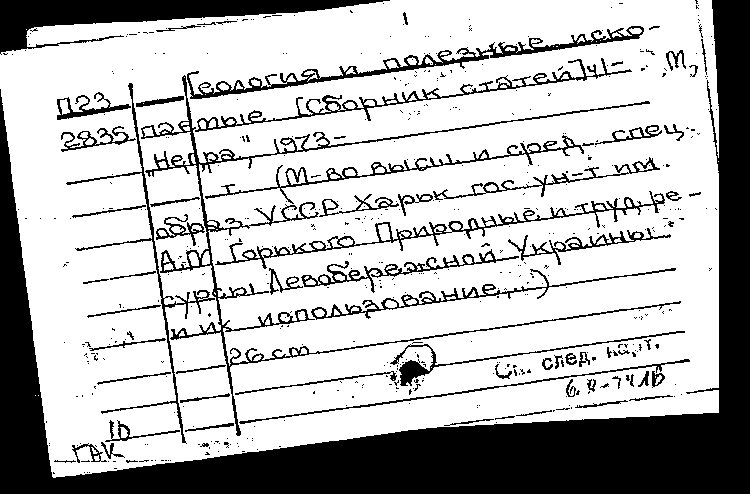 1
П23 Геология и полезные иско-
2835 паемые [Сборник статей] Ч1- . М,
„Недра", 1973-
т. (М-во высш. и сред. спец.
образ. УССР. Харьк гос. ун-т им.
А.М. Горького Природные и труд. ре-
сурсы Левобережной Украины
и их использование...)
26 cm
См. след. на
6.8-74
10
ГАК